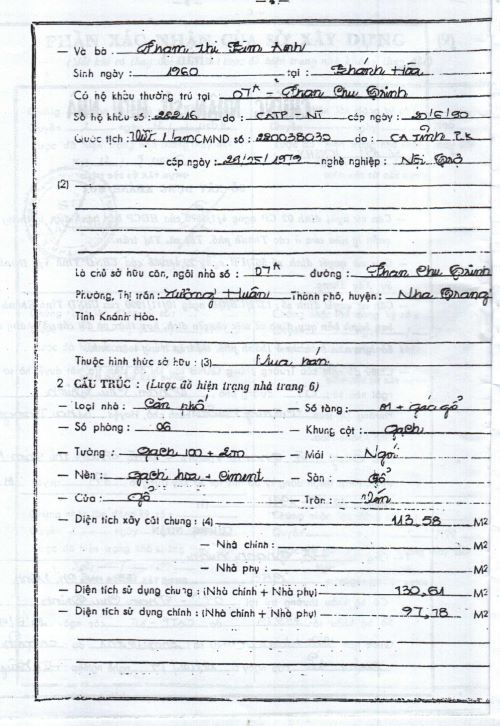 — Và bà : Phạm Thị Kim Anh
Sinh ngày : 1960 tại : Khánh Hòa
Có hộ khẩu thường trú tại : 07A - Phan Chu Trinh
Số hộ khẩu số : 26216 do : CATP - NT cấp ngày : 20/6/90
Quốc tịch : Việt Nam CMND số : 220038032 do : CA Tỉnh P.K
— cấp ngày : 29/75/1979 nghề nghiệp : Nội Trợ
(2)
Là chủ sở hữu căn, ngôi nhà số : 07A đường : Phan Chu Trinh
Phường, Thị trấn : Xương Huân Thành phố, huyện : Nha Trang
Tỉnh Khánh Hòa.
Thuộc hình thức sở hữu : (3) Mua bán
2 CẤU TRÚC : (Lược đồ hiện trạng nhà trang 6)
— Loại nhà : Căn phố — Số tầng : 01 + gác gỗ
— Số phòng : 06 — Khung cột : Gạch
— Tường : gạch 100 + 200 — Mái : Ngói
— Nền : gạch hoa + Ciment — Sàn : Gỗ
— Cửa : Gỗ — Trần : Ván
— Diện tích xây cất chung : (4) 113,58 M2
— Nhà chính : M2
— Nhà phụ : M2
— Diện tích sử dụng chung : (Nhà chính + Nhà phụ) 130,61 M2
— Diện tích sử dụng chính : (Nhà chính + Nhà phụ) 97,78 M2